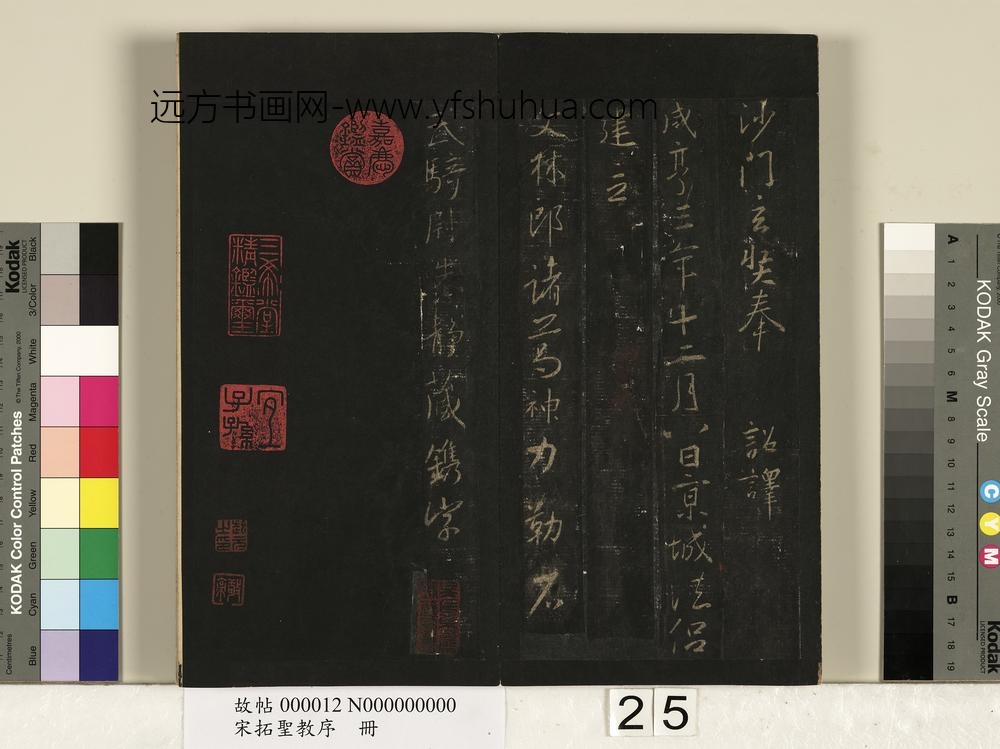 远方书画网-www.yfshuhua.com
沙门玄奘奉 詔譯
咸亨三年十二月八日京城法侣
建立
文林郎諸葛神力勒石
武騎尉朱靜藏鐫字
嘉慶鑑賞
三希堂精鑑璽
宜子孫
故帖 000012 N000000000
宋拓聖教序 冊
25
Kodak
LICENSED PRODUCT
KODAK Color Control Patches
© The Tiffen Company, 2000
Centimetres
Blue
Cyan
Green
Yellow
Red
Magenta
White
3/Color
Black
KODAK Gray Scale
A 1 2 3 4 5 6 M 8 9 10 11 12 13 14 15 B 17 18 19
C
Y
M
Kodak
LICENSED PRODUCT